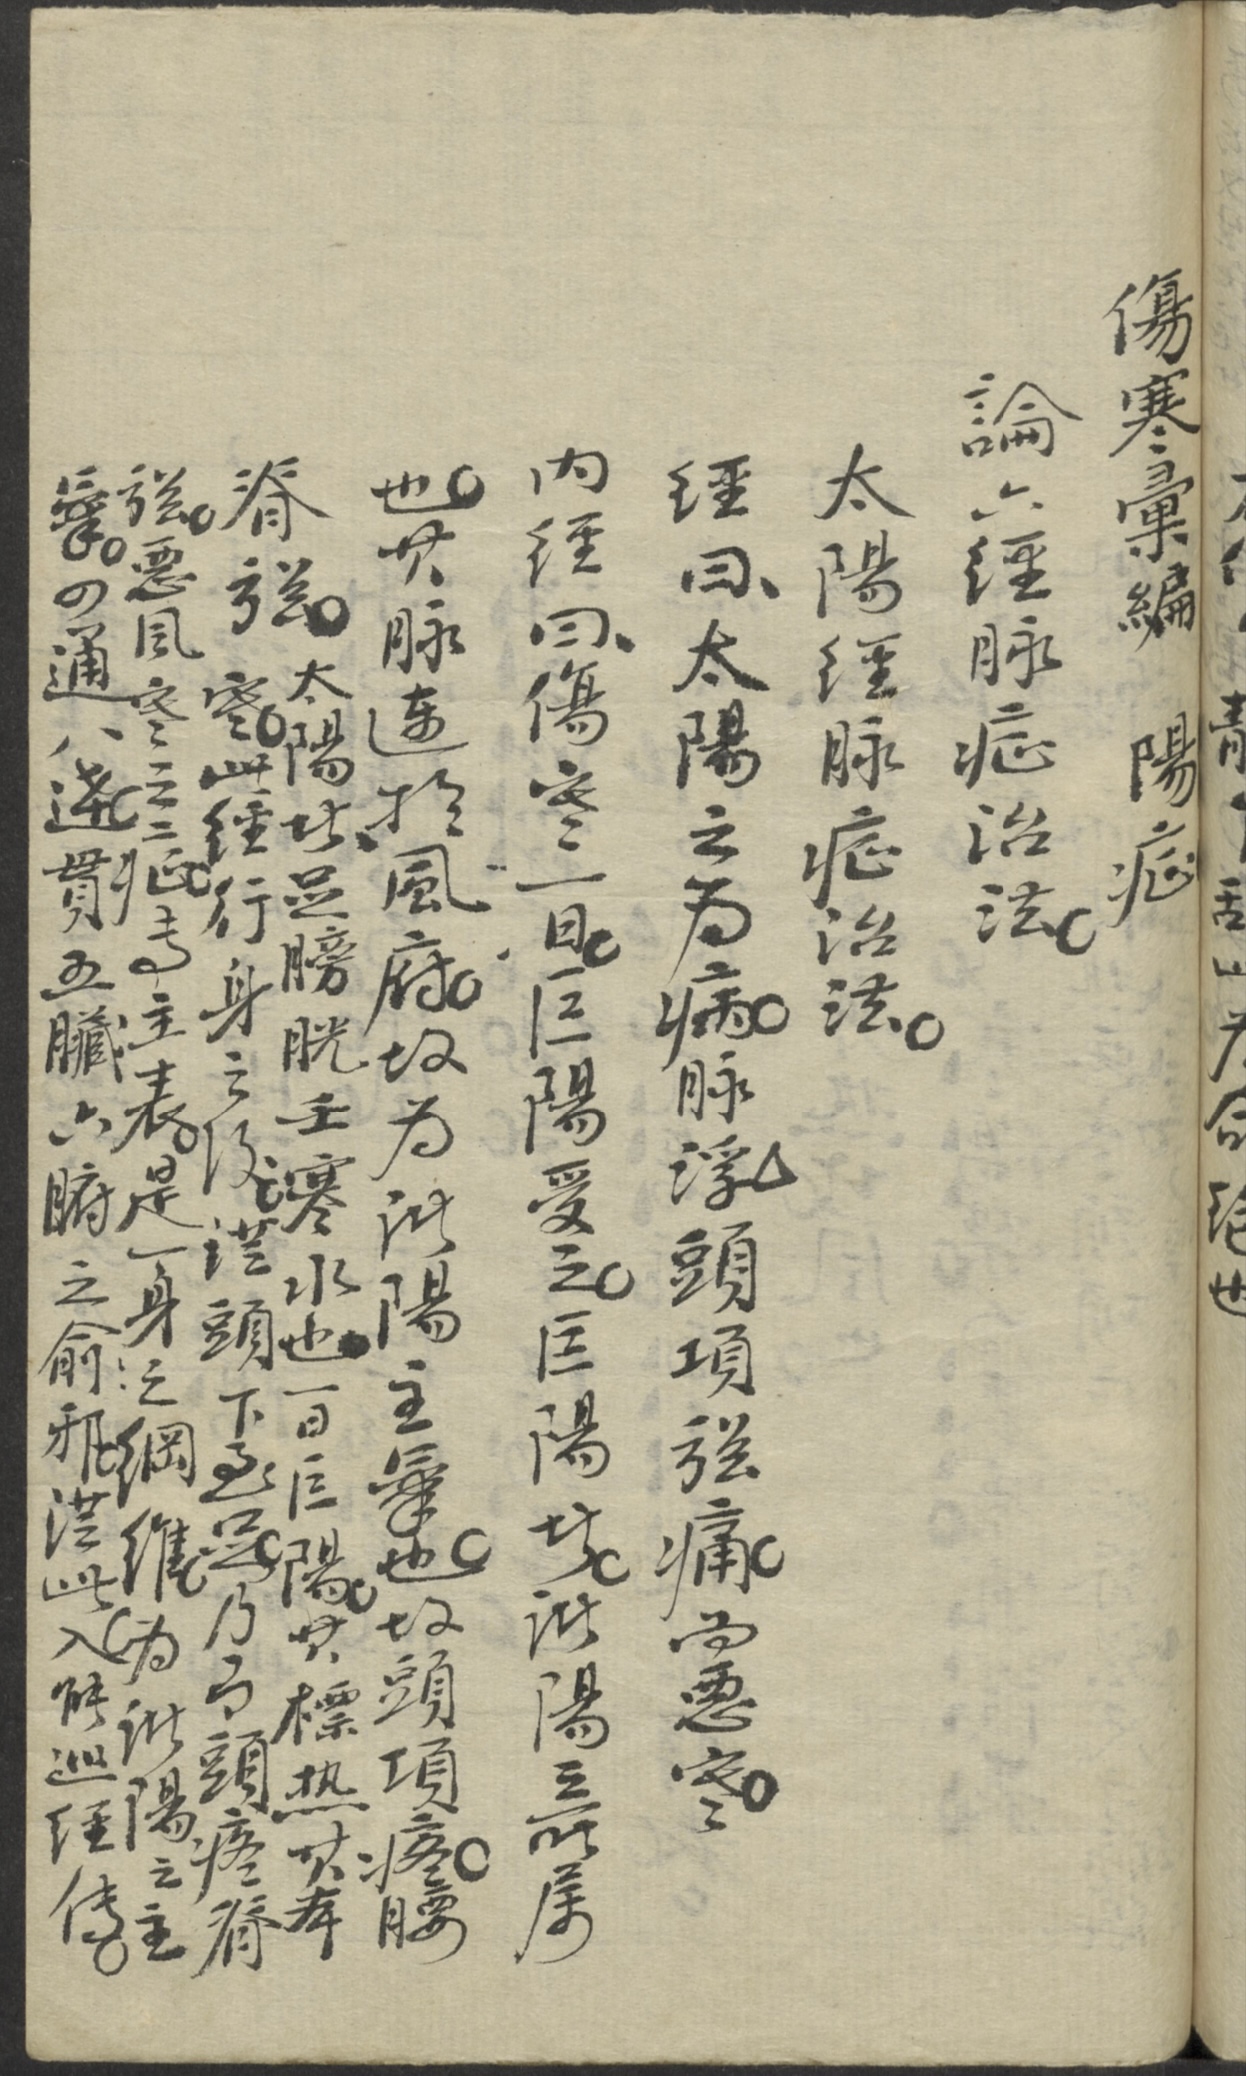 傷寒彙編 陽症
論六經脉症治法。
太陽經脉症治法。
經曰、太陽之為病。脉浮頭項强痛。而惡寒。
内經曰、傷寒一日。巨陽受之。巨陽者。諸陽之所属
也。其脉連於風府。故為諸陽主氣也。故頭項疼。腰
脊强。
太陽者、足膀胱壬寒水也。一曰巨陽。其標热其本
寒。此經行身之後。從頭下至足。乃有頭疼脊
强。惡風寒之症。専主表。是一身之綱維。為諸陽之主
氣。四通八達。貫五臟六腑之俞邪從此入能巡經傳。